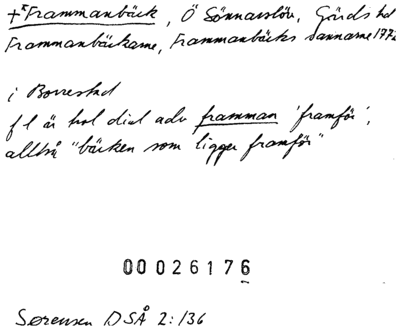 +*Frammanbäck, Ö Sönnarslöv, Gärds hd
Frammanbäckarne, Frammanbäcks dannarne 177
i Borrestad
f l är hol dial adv framman 'framför',
alltså "bäcken som ligger framför"
00026176
Sørensen DSÅ 2:136